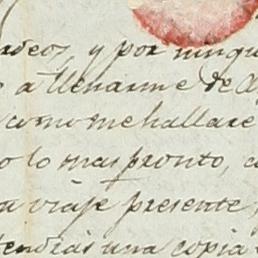 y por ningu
a llenarme de
como me hallare
o lo mas pronto,
a viaje presente,
tendrás una copia